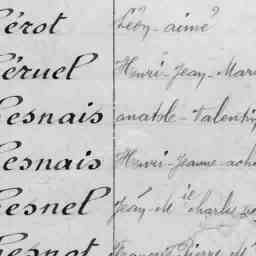 érot Léon-aimé
éruel Henri-Jean-Mari
esnais anatole-Valentin
esnais Henri-Jeanne-ach
esnel Jean-Mie Charles
esnot François Pierre M